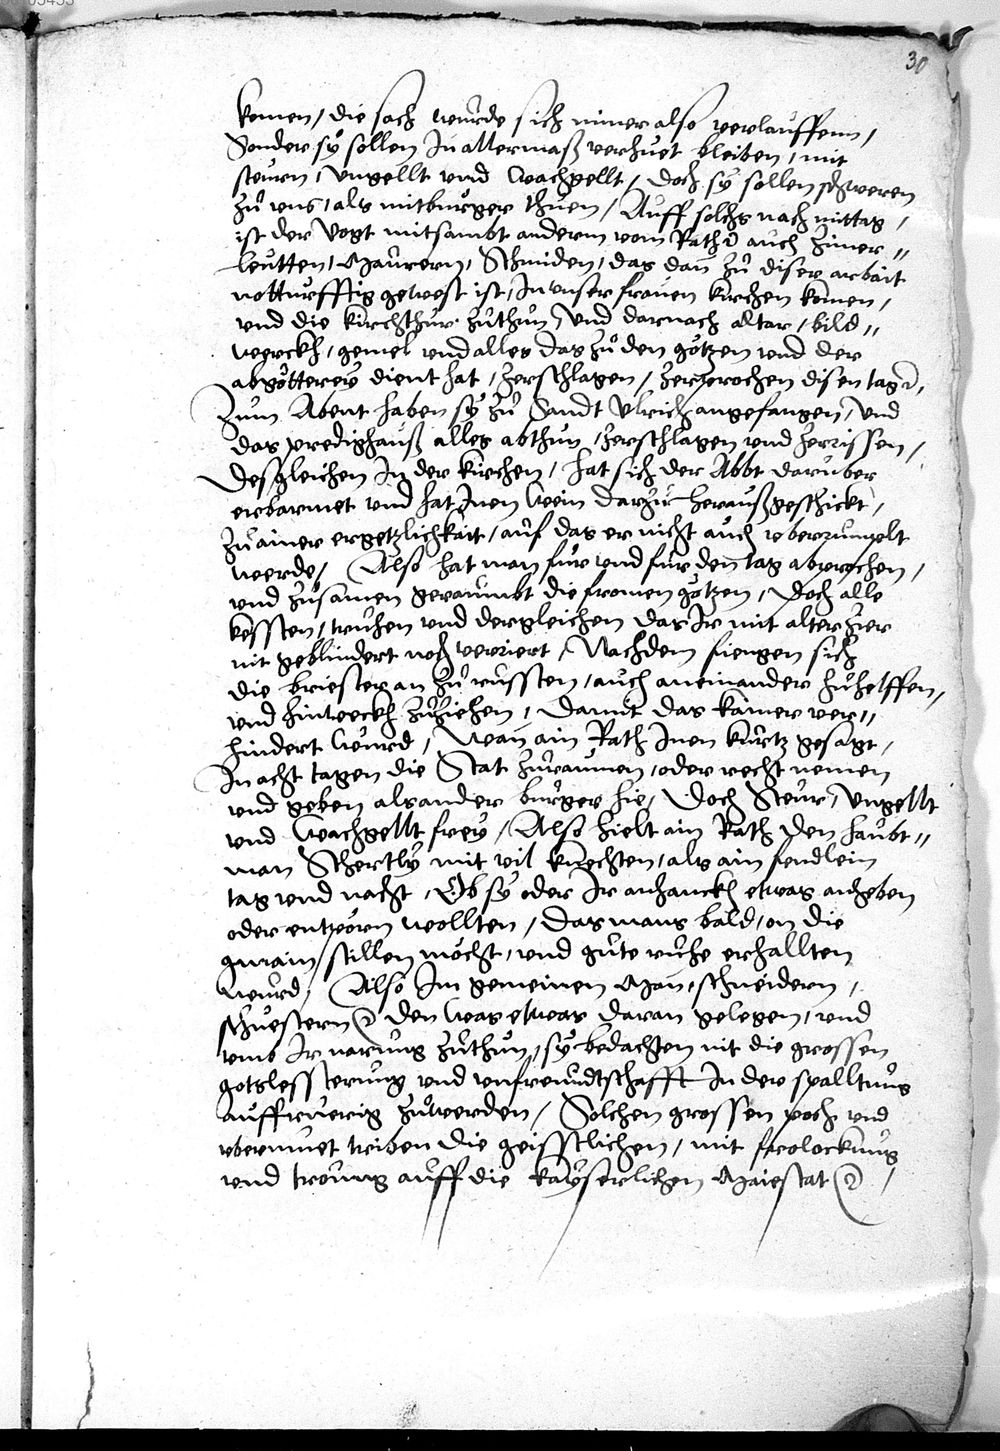 30
komen / die sach wurde sich nimer also verlauffenn /
Sonder sÿ sollen In allermaß verhuet bleiben / mit
steurn / Ungellt und Wachgellt / doch sÿ sollen schweren
zu uns / als mitburger thuen / Auff solchs nach mittag /
ist der Vogt mitsambt anderm vom Rath auch Zimer„
leutten / Maurern / Schmiden / das dan zu diser arbait
notturfftig gewest ist / In unser frauen kirchen komen /
und die kirchthur zuthun / Und darnach altar / bild„
werckh / gemel und alles das zu den götzen und der
abgötterey dient hat / zerschlagen / zerprochen disen tag /
Zum Abent haben sÿ zu Sandt Ulrich angefangen / und
das predighauß alles abthun / zerschlagen und zerrissen /
desgleichen In der kirchen / hat sich der Abbt daruber
erbarmet und hat Inen Wein darzu herauß geschickt /
zu ainer ergetzlichkait / auf das er nicht auch uberrumpelt
werde / Also hat man fur und fur den tag abprochen /
und zusamen geraumbt die fromen götzen / doch alle
kessten / truhen und dergleichen das Ir mit alter zier
nit geblindert noch verriert / Nachdem fiengen sich
die briester an zu russten / auch aneinander zuhelffen /
und hinweckh zuziehen / damit das kainer ver„
hindert wurd / Wan ain Rath Inen kurtz gesagt /
In acht tagen die Stat zuraumen / oder recht nemen
und geben als ander burger hie / doch Steur / Ungellt
und Wachgellt frey / Also hielt ain Rath den haubt„
man Schertly mit vil knechten / als ain fendlein
tag und nacht / Ob sÿ oder Ir anhanckh etwas anheben
oder entpörn wollten / das mans bald / on die
gmain / stillen möcht / und gute ruhe erhallten
wurd / Also Im gemeinen Man / schneidern /
schuestern den was etwas daran gelegen / und
umb Ir narung zuthun / sÿ bedachten nit die grossen
gotslessterung und unfreundtschafft In der spalltung
auffruerig zuwerden / Solchen grossen poch und
ubermuet triben die geisstlichen / mit frolockung
und troung auff die kayserlichen Maiestat /